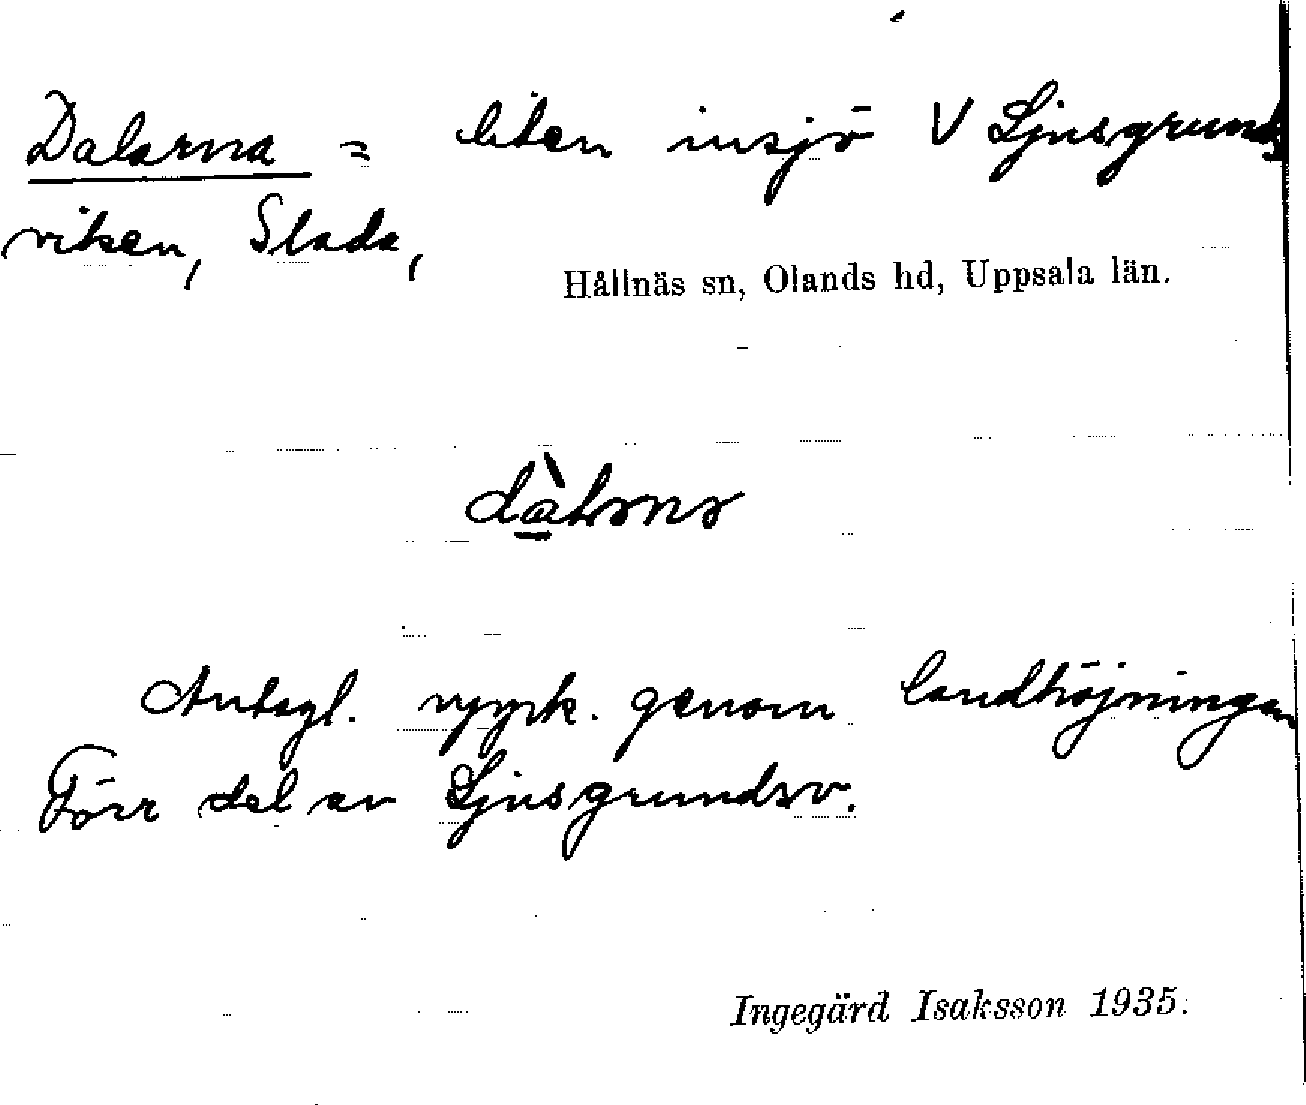 Dalarna = liten insjö V Ljusgrunds
viken, Slada,
Hållnäs sn, Olands hd, Uppsala län.
Antagl. uppk. genom landhöjningen
Förr del av Ljusgrundsv.
Ingegärd Isaksson 1935.